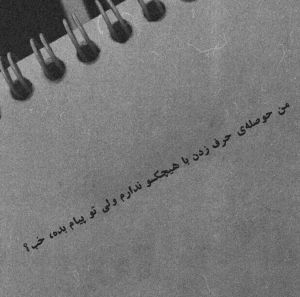 من حوصله‌ی حرف زدن با هیچکسو ندارم ولی تو پیام بده، خب؟